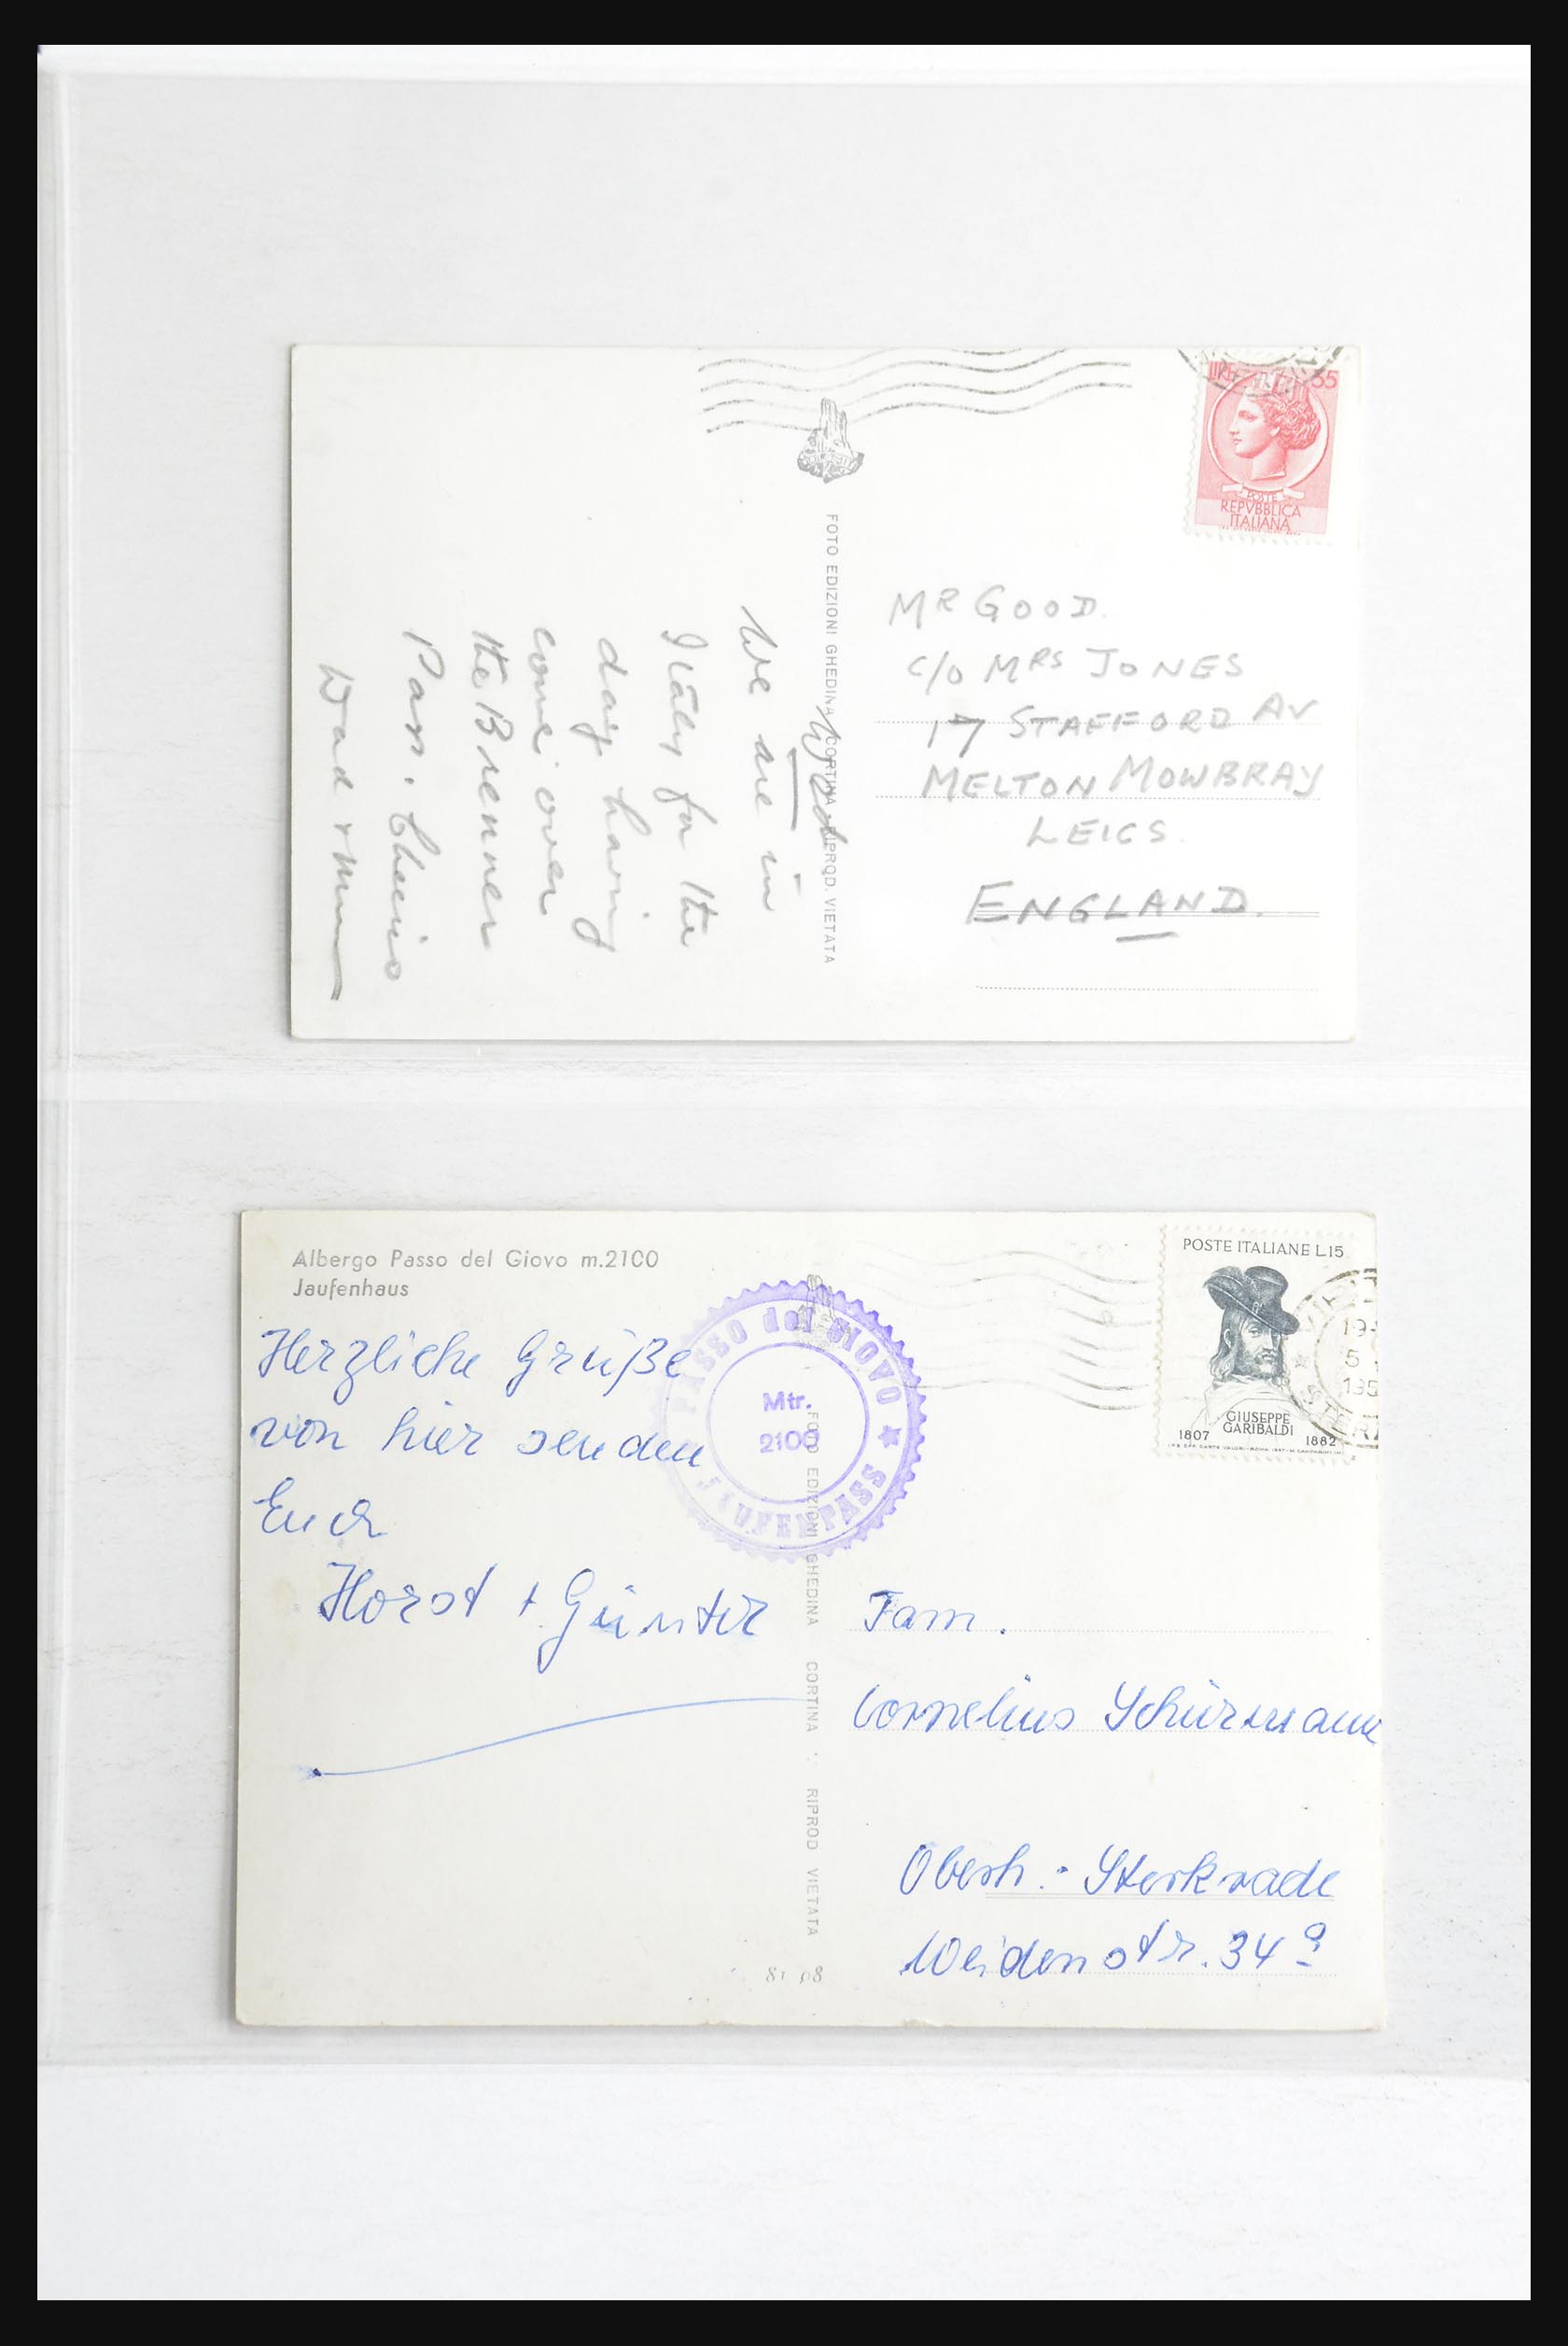 LIRE 35
POSTE
REPVBBLICA
ITALIANA
FOTO EDIZIONI GHEDINA CORTINA RIPROD. VIETATA
We are in
Italy for the
day having
come over
the Brenner
Pass. Cheerio
Dad + Mum
MR GOOD.
C/O MRS JONES
17 STAFFORD AV
MELTON MOWBRAY
LEICS.
ENGLAND.
Albergo Passo del Giovo m.2100
Jaufenhaus
Herzliche Grüße
von hier senden
Euch
Horst + Günter
PASSO del GIOVO
Mtr.
2100
JAUFENPASS
FOTO EDIZIONI GHEDINA CORTINA : RIPROD VIETATA
POSTE ITALIANE L.15
GIUSEPPE
GARIBALDI
1807 1882
19
5
195
Fam.
Cornelius Schürmann
Oberh.- Sterkrade
Weidenstr. 34a